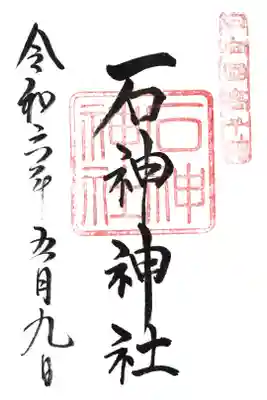 石神神社
石神
神社
令和六年五月九日